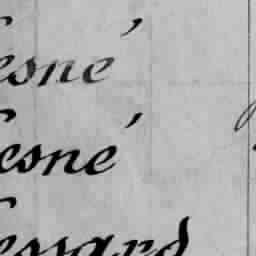 esné
esné
essard